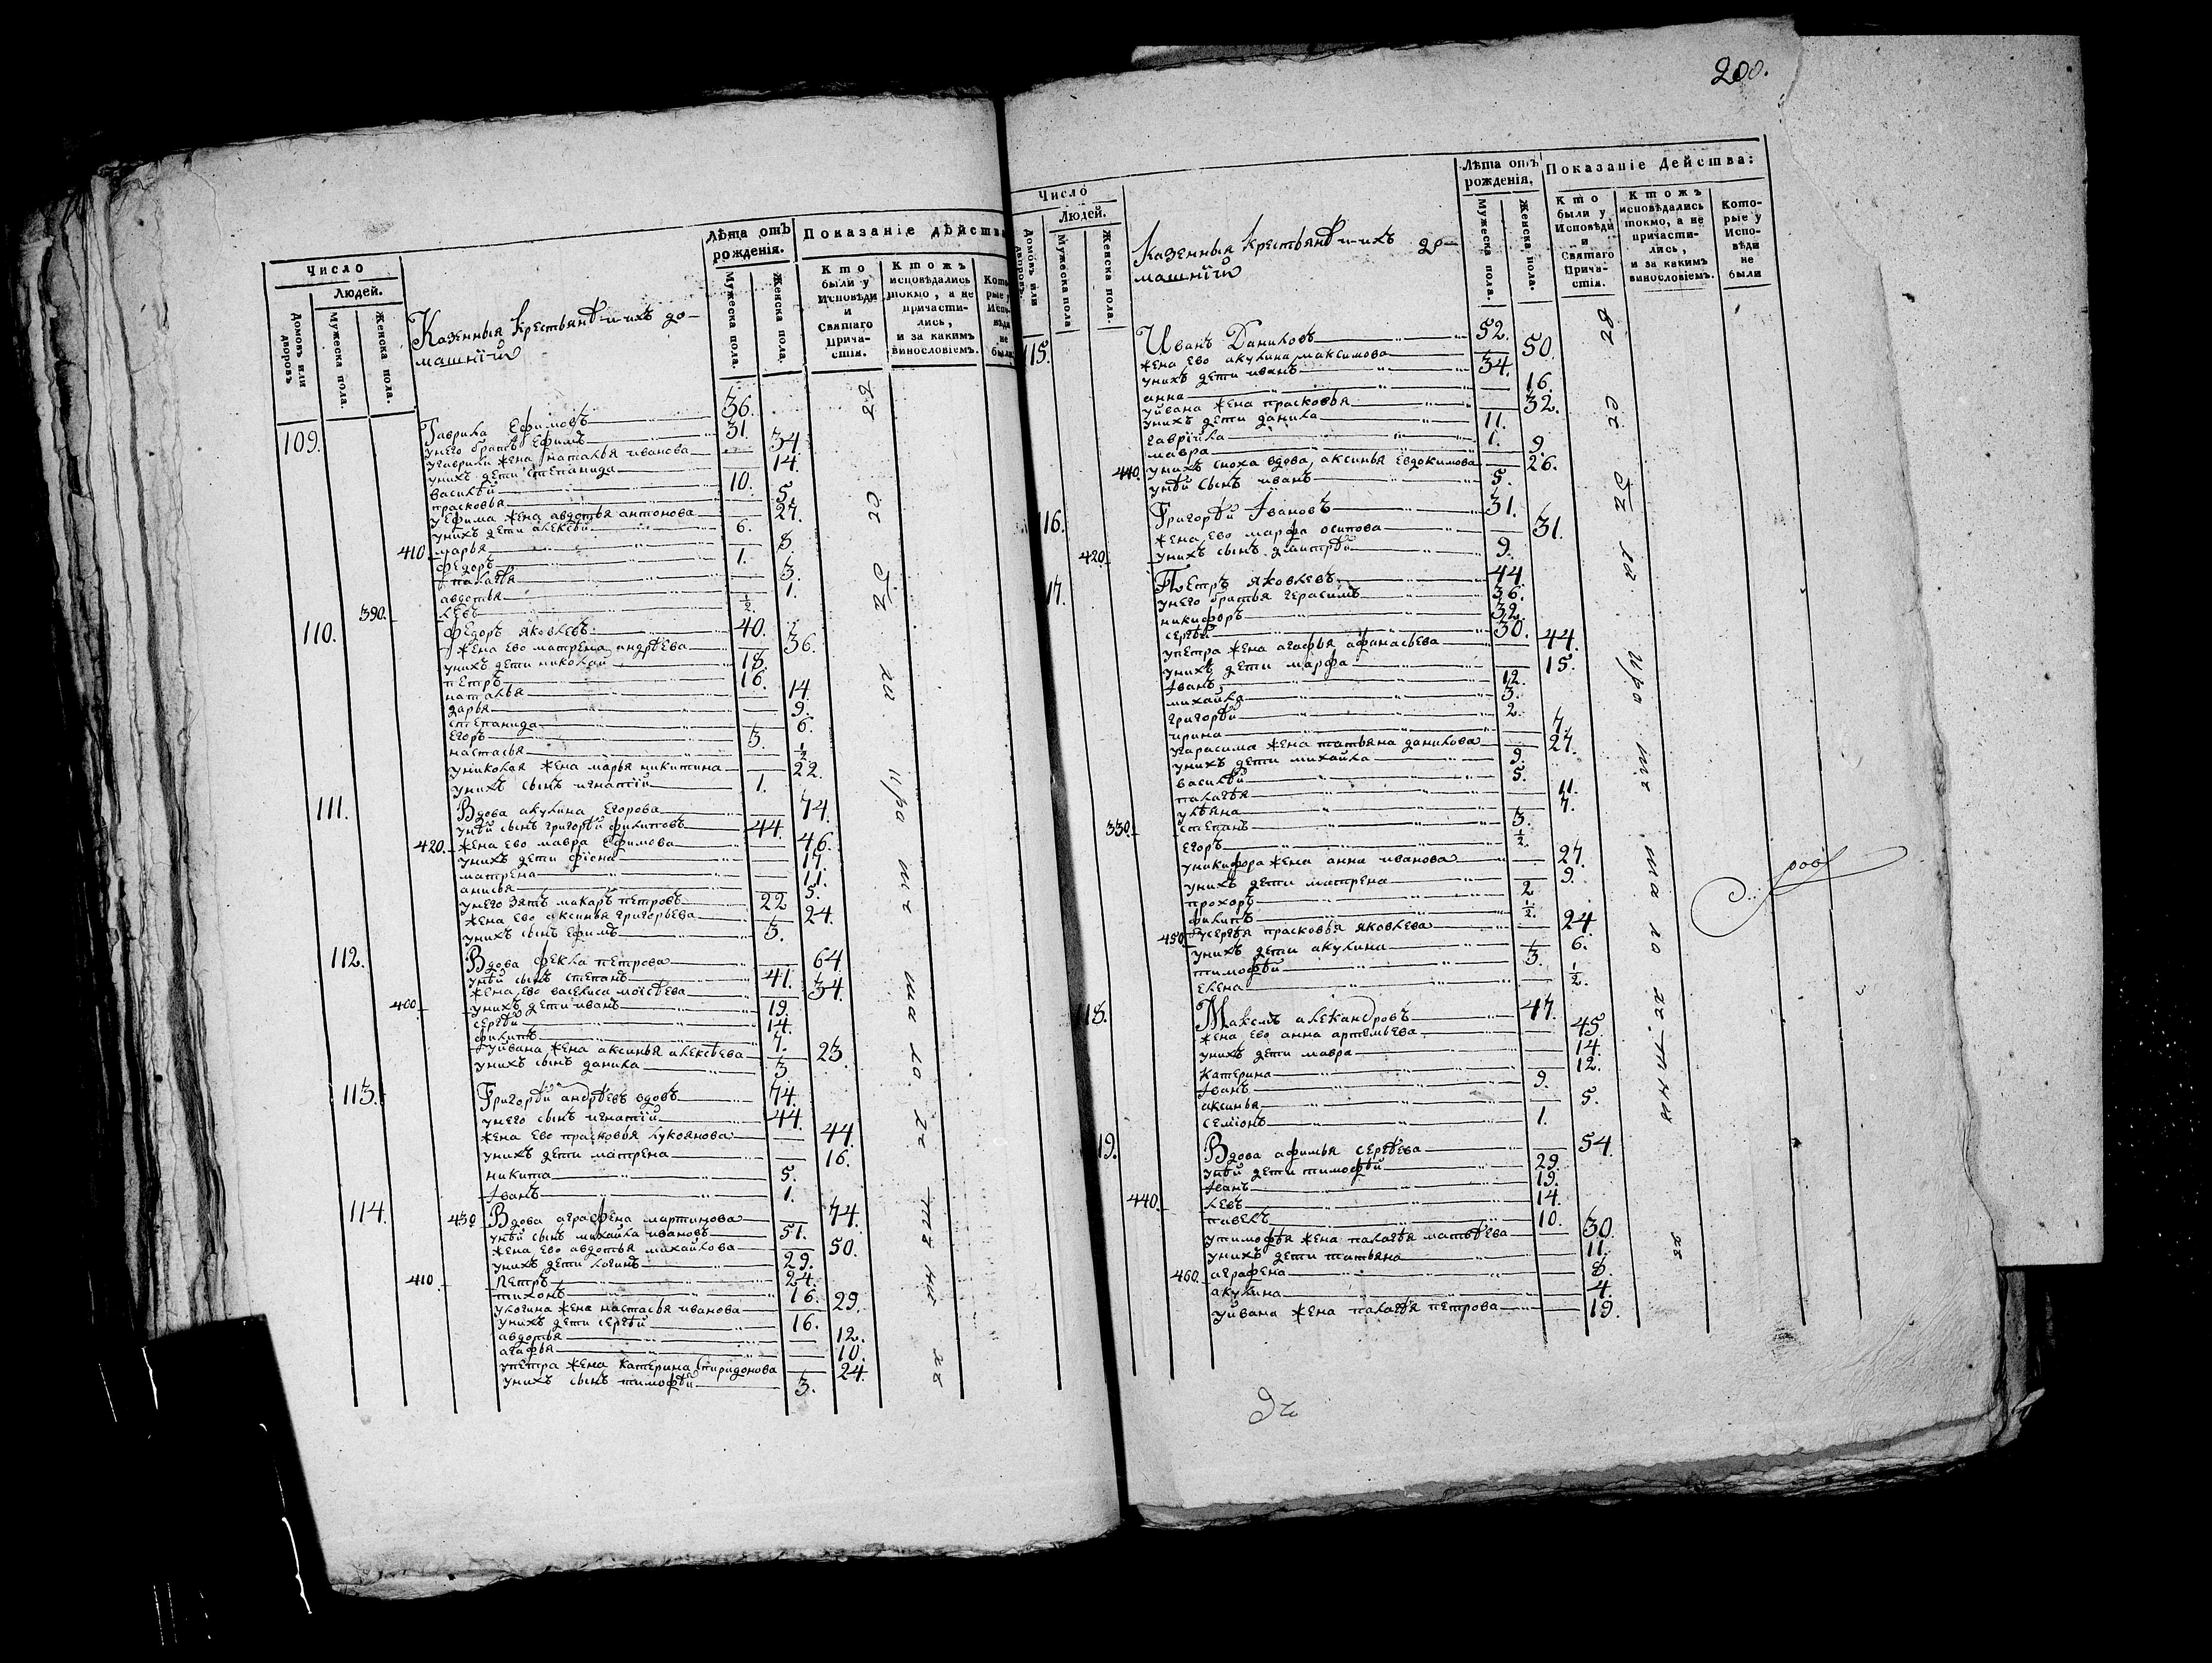 Число
Людей.
Домовъ или дворовъ
Мужеска пола.
Женска пола.
Казенныя крестьянѣ и ихъ до-
машнїи
Лѣта отъ рожденія.
Мужеска пола.
Женска пола.
Показаніе дѣйства
Кто были у Исповѣди и Святаго Прича-стія.
Ктожъ исповѣдались токмо, а не причасти-лись, и за какимъ винословіемъ.
109. Гаврила Ефимовъ 36.
унего братъ Ефимъ 31.
угаврили жена наталья иванова 34
унихъ дети степанида 14.
василѣй 10.
прасковья 5.
уефима жена авдотья антонова 27.
унихъ дети алексѣй 6.
410 марья 8
федоръ 1.
палагѣя 3.
авдотья 1.
390. левъ ½.
110. федоръ яковлевъ 40.
жена ево матрена андрѣева 36.
унихъ дети николай 18.
петръ 16.
наталья 14.
дарья 9.
степанида 6.
егоръ 3.
настасья ½
униколая жена марья никитина 22.
унихъ сынъ игнатїй 1.
111. Вдова акулина Егорова 74.
унѣй сынъ григорѣй филиповъ 44.
420. жена ево мавра Ефимова 46.
унихъ дети фіона 17.
матрена 11.
анисья 5.
унего зять макаръ петровъ 22
жена ево аксинья григорьева 24.
унихъ сынъ ефимъ 3.
112. Вдова фекла петрова 64.
унѣй сынъ степанъ 41.
жена ево василиса моисѣева 34.
400. унихъ дети иванъ 19.
сергѣй 14.
филипъ 7.
уйвана жена аксинья алексѣева 23.
унихъ сынъ данила 3
113. Григорѣй андрѣевъ вдовъ 74.
унего сынъ игнатїй 44.
жена ево прасковья лукоянова 44.
унихъ дети матрена 16.
никита 5.
Іванъ 1.
114. 430 Вдова аграфена мартинова 74.
унѣй сынъ михайла ивановъ 51.
жена ево авдотья михайлова 50.
унихъ дети логинъ 29.
410 Петръ 24.
тихонъ 16.
улогина жена настасья иванова 29.
унихъ дети сергѣй 16.
авдотья 12.
агафья 10.
упетра жена катерина спиридонова 24.
унихъ сынъ тимофѣй 3.
200.
Число
Людей.
Домовъ или дворовъ.
Мужеска пола
Женска пола.
Казенныя крестьянѣ и ихъ до-
машнїи
Лѣта отъ рожденія.
Мужеска пола.
Женска пола.
Показаніе Дѣйства:
Кто были у Исповѣди и Святаго Прича-стія.
Ктожъ исповѣдались токмо, а не причасти-лись, и за какимъ винословіемъ.
Кото-рые у Испо-вѣди не были
115. Иванъ Даниловъ 52.
жена ево акулина максимова 50.
унихъ дети иванъ 34.
анна 16.
уйвана жена прасковья 32.
унихъ дети данила 11.
гаврійла 1.
мавра 9.
440 унихъ сноха вдова, аксинья евдокимова 26.
унѣй сынъ иванъ 5.
116. Григорѣй Івановъ 31.
жена ево марфа осипова 31.
420 унихъ сынъ дмитрѣй 9.
17. Петръ яковлевъ 44.
унего братья герасимъ 36.
никифоръ 32.
сергѣй 30.
упетра жена агафья афанасьева 44.
унихъ дети марфа 15.
Іванъ 12.
михайла 3.
григорѣй 2.
ирина 7.
угарасима жена татьяна данилова 27.
унихъ дети михайла 9.
василѣй 5.
палагѣя 11.
ульяна 7.
330. степанъ 3.
егоръ ½.
уникифора жена анна иванова 27.
унихъ дети матрена 9.
прохоръ 2
филипъ ½.
450 усергѣя прасковья яковлева 24
унихъ дети акулина 6.
тимофѣй 3.
елена ½.
18. Максимъ александровъ 47.
жена ево анна артемьева 45.
унихъ дети мавра 14.
катерина 12.
Іванъ 9.
аксинья 5.
семіонъ 1.
19. Вдова афимья сергѣева 54.
унѣй дети тимофѣй 29.
Іванъ 19.
440. левъ 14.
павелъ 10.
утимофѣя жена палагѣя матвѣева 30.
унихъ дети татьяна 11.
460. аграфена 8.
акулина 4.
уйвана жена палагѣя петрова 19.